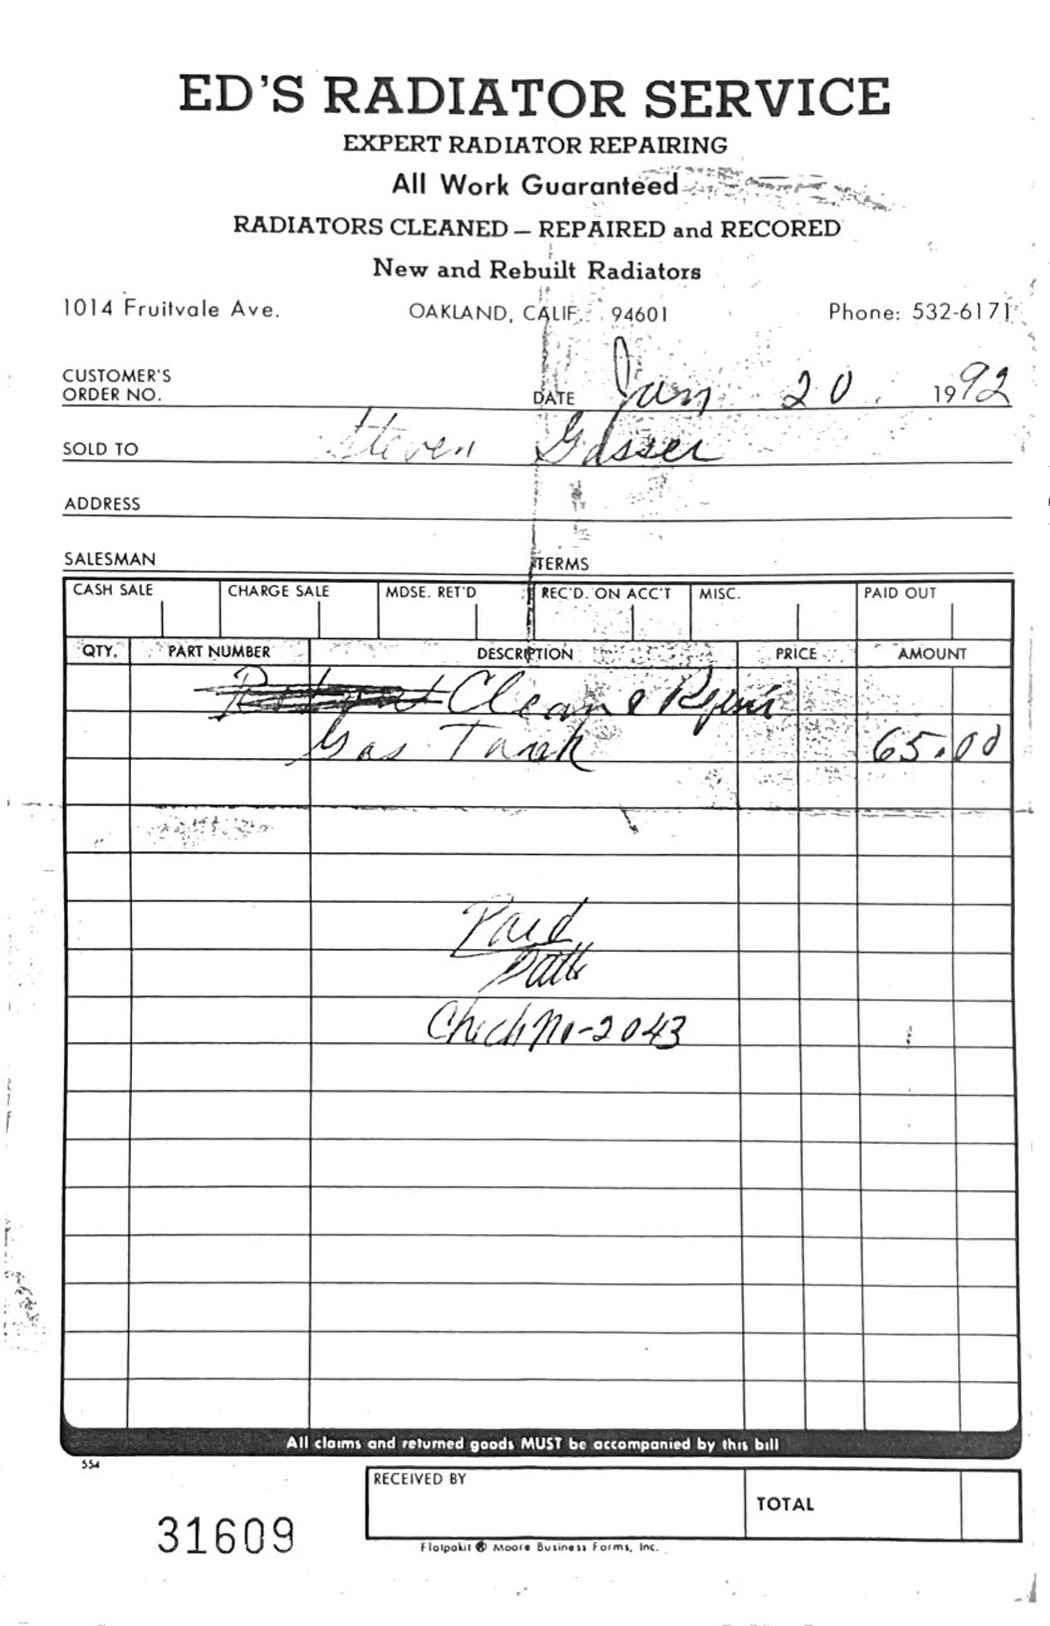 ED'S RADIATOR SERVICE
EXPERT RADIATOR REPAIRING
All Work Guaranteed
RADIATORS CLEANED — REPAIRED and RECORED
New and Rebuilt Radiators
1014 Fruitvale Ave. OAKLAND, CALIF. 94601 Phone: 532-6171
CUSTOMER'S
ORDER NO. DATE Jan 20 1992
SOLD TO Steven Gasser
ADDRESS
SALESMAN TERMS
CASH SALE CHARGE SALE MDSE. RET'D REC'D. ON ACC'T MISC. PAID OUT
QTY. PART NUMBER DESCRIPTION PRICE AMOUNT
Clean & Repair
Gas Tank 65.00
Paid
Check No-2043
All claims and returned goods MUST be accompanied by this bill
554
RECEIVED BY
TOTAL
31609
Flatpakit ® Moore Business Forms, Inc.